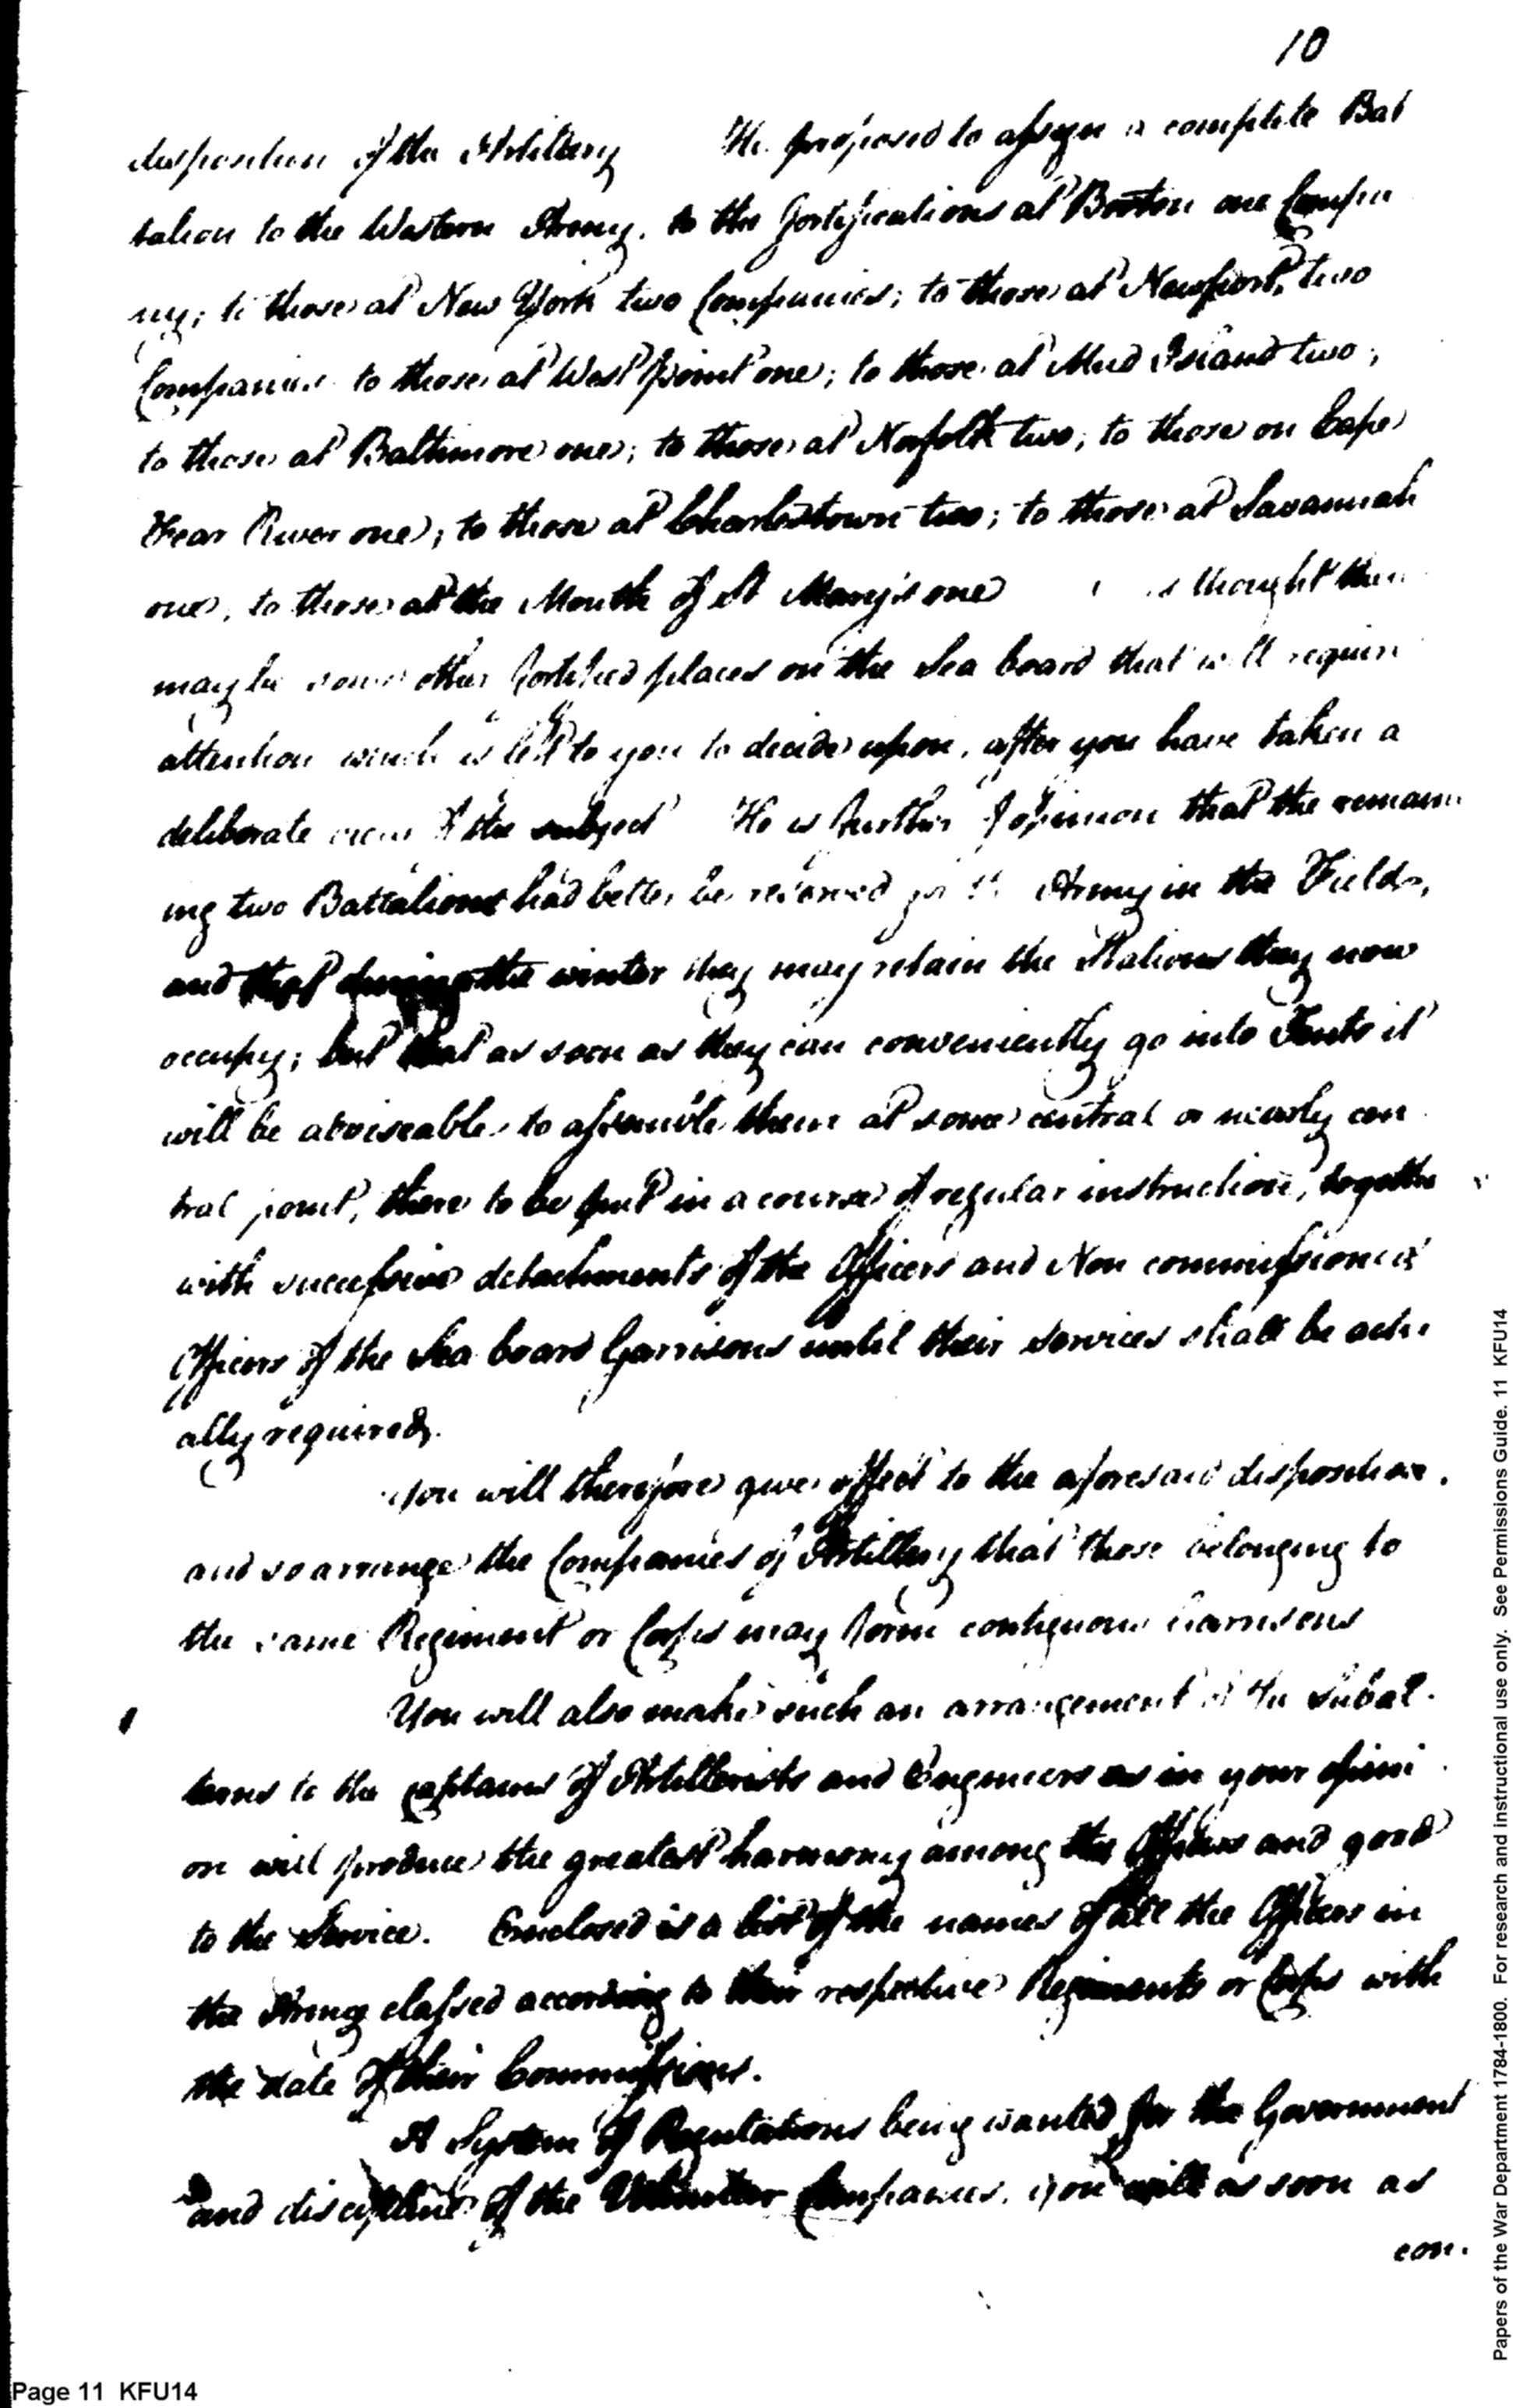 10
disposition of the Artillery He proposed to assign a complete Bat
talion to the Western Army, to the fortifications at Boston one Compa
ny; to those at New York two Companies; to those at Newport, two
Companies to those at West point one; to those at Mud Island two;
to those at Baltimore one; to those at Norfolk two; to those on Cape
Fear River one; to those at Charlestown two; to those at Savannah
one, to those at the Mouth of St Mary's one thought there
may be some other fortified places on the Sea board that will require
attention which is left to you to decide upon, after you have taken a
deliberate view of the subject He is further of opinion that the remain
ing two Battalions had better be reserved for the Army in the Field,
and that during the winter they may retain the Stations they now
occupy; but that as soon as they can conveniently go into Tents it
will be adviseable to assemble them at some central or nearly cen
tral point, there to be put in a course of regular instruction, together
with successive detachments of the Officers and Non commissioned
Officers of the Sea board Garrisons until their services shall be actu
ally required.
You will therefore give effect to the aforesaid disposition.
and so arrange the Companies of Artillery that those belonging to
the same Regiment or Corps may form contiguous Garrisons
You will also make such an arrangement of the Subal.
terns to the Captains of Artillerists and Engineers as in your opini
on will produce the greatest harmony among the Officers and good
to the Service. Enclosed is a list of the names of all the Officers in
the Army classed according to their respective Regiments or Corps with
the date of their Commissions.
A System of Regulations being wanted for the Government
and discipline of the Volunteer Companies, you will as soon as
con.
Page 11 KFU14
Papers of the War Department 1784-1800. For research and instructional use only. See Permissions Guide. 11 KFU14